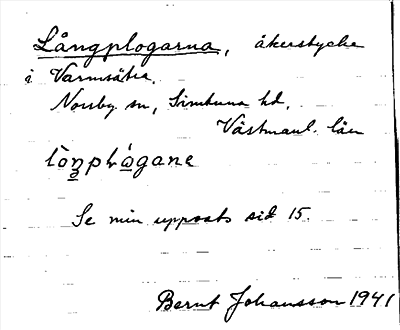 Långplogarna, åkerstycke
i Varmsätra,
Norrby sn, Simtuna hd,
Västmanl. län
Se min uppsats sid 15.
Bernt Johansson 1941